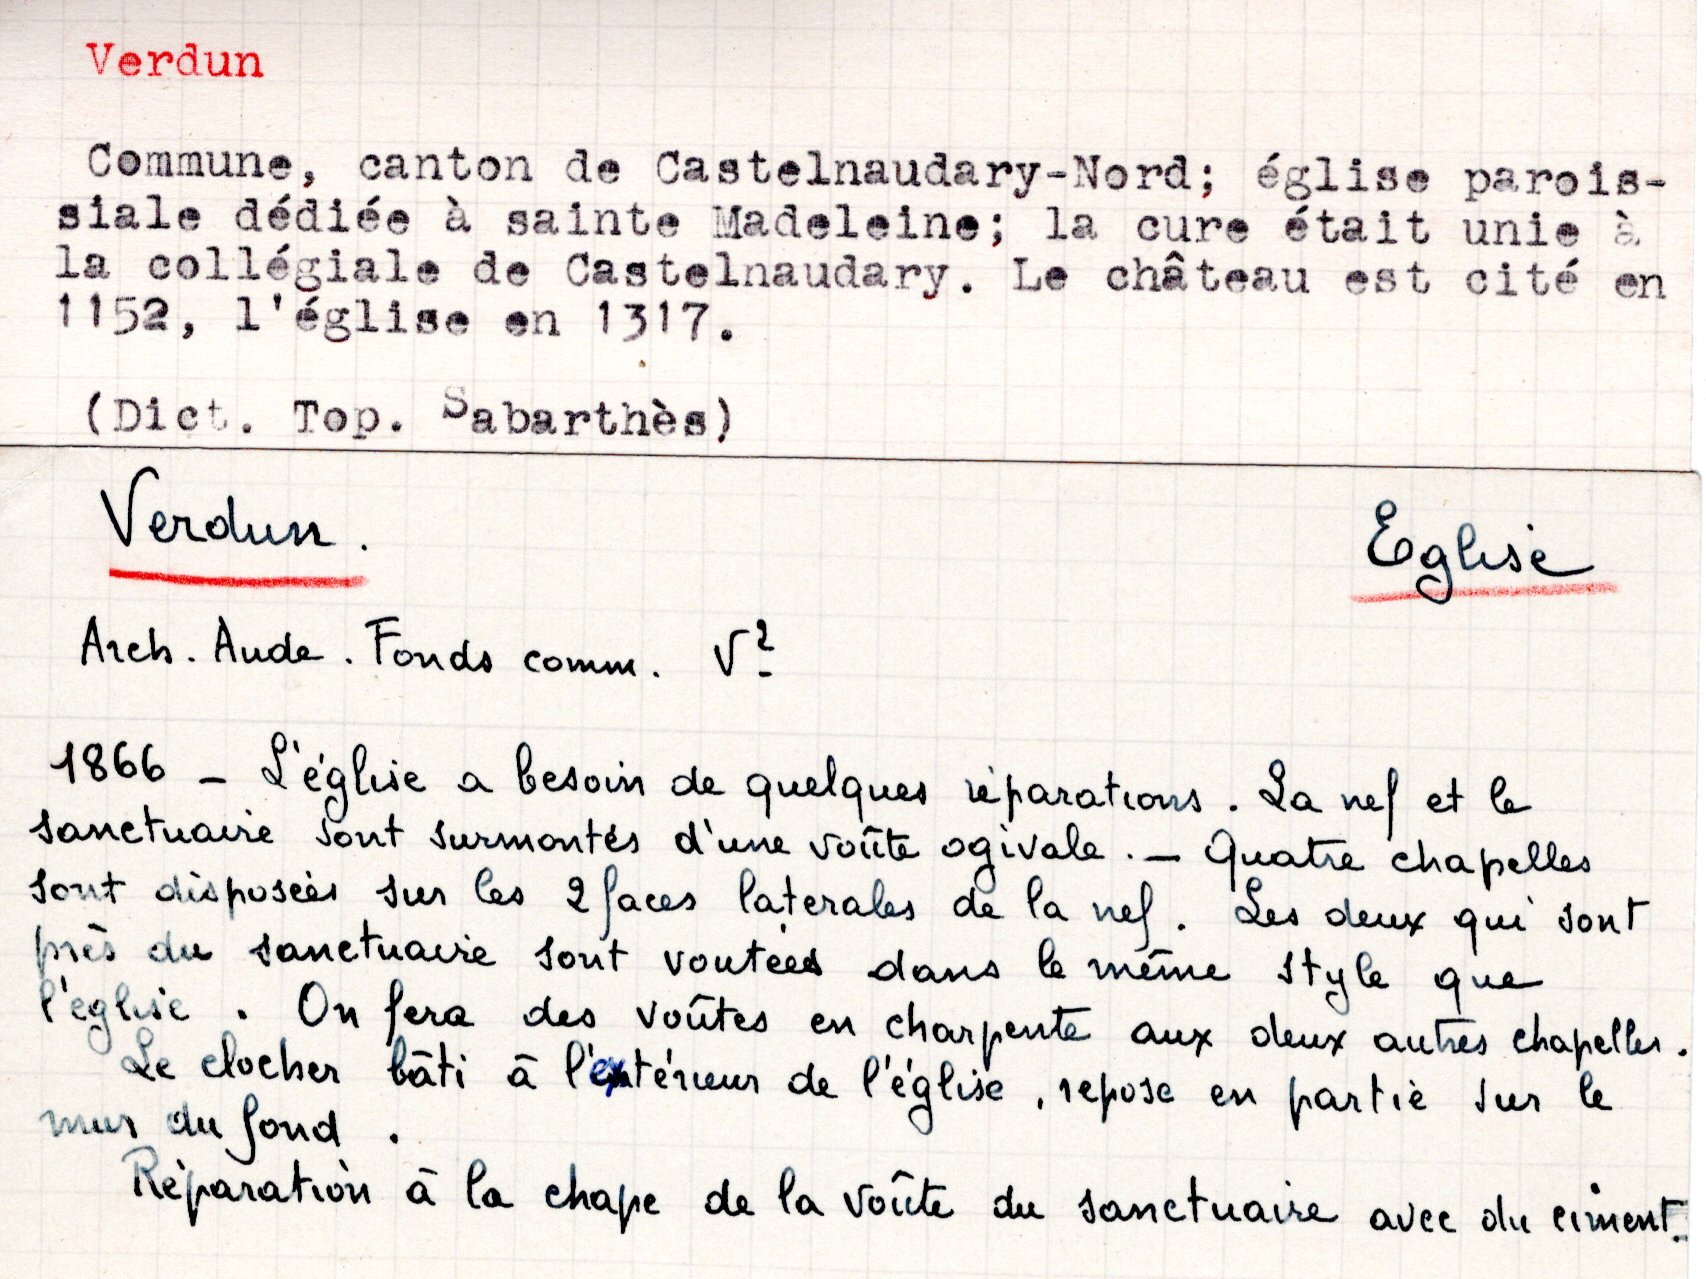 Verdun
Commune, canton de Castelnaudary-Nord; église parois-
siale dédiée à sainte Madeleine; la cure était unie à
la collégiale de Castelnaudary. Le château est cité en
1152, l'église en 1317.
(Dict. Top. Sabarthès)
Verdun. Eglise
Arch. Aude. Fonds comm. V²
1866 - L'église a besoin de quelques réparations. La nef et le
sanctuaire sont surmontés d'une voûte ogivale. - Quatre chapelles
sont disposées sur les 2 faces laterales de la nef. Les deux qui sont
près du sanctuaire sont voutées dans le même style que
l'église. On fera des voûtes en charpente aux deux autres chapelles.
Le clocher bâti à l'extérieur de l'église, repose en partie sur le
mur du fond.
Réparation à la chape de la voûte du sanctuaire avec du ciment.